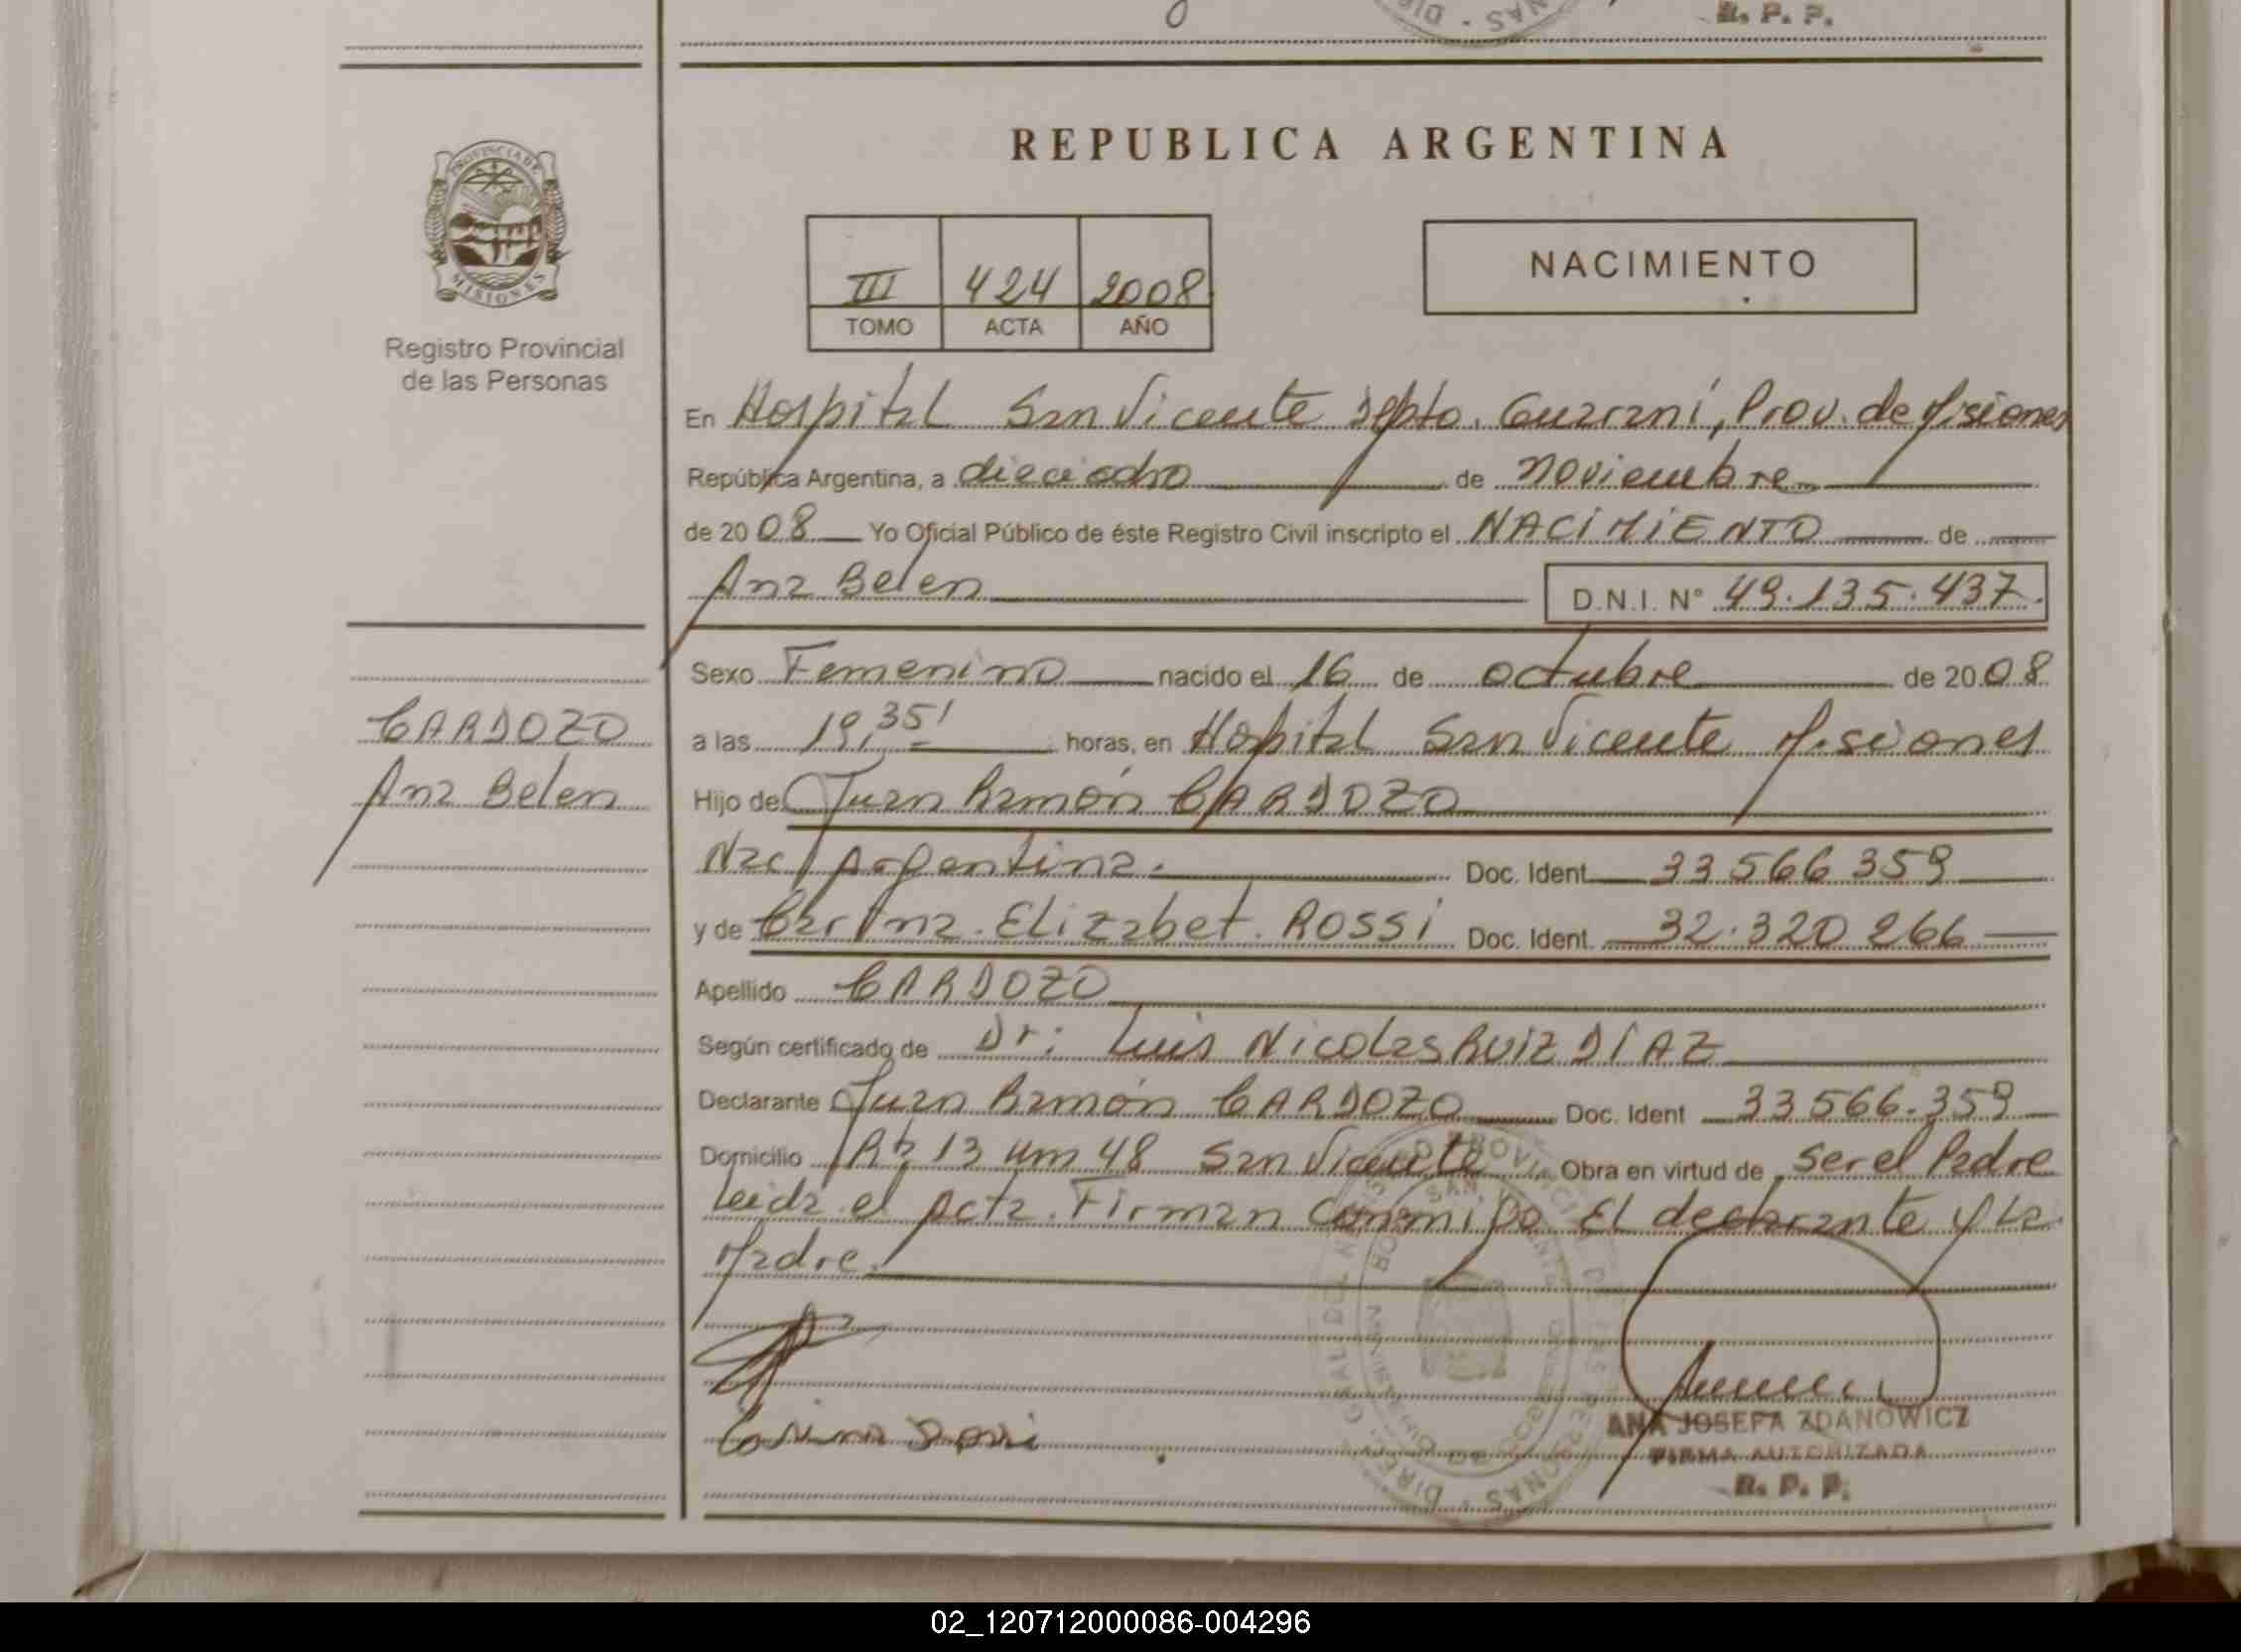 R. P. P.
PROVINCIA DE
MISIONES
Registro Provincial
de las Personas
REPUBLICA ARGENTINA
III 424 2008
TOMO ACTA AÑO
NACIMIENTO
En Hospital San Vicente Depto. Guaraní, Prov. de Misiones
República Argentina, a dieciocho de noviembre
de 2008 Yo Oficial Público de éste Registro Civil inscripto el NACIMIENTO de
Ana Belen D.N.I. N° 49.135.437.
Sexo Femenino nacido el 16 de octubre de 2008
CARDOZO
Ana Belen
a las 19,35' horas, en Hospital San Vicente Misiones
Hijo de Juan Ramón CARDOZO
Nac/ Argentina. Doc. Ident 33 566 359
y de Carina Elizabet ROSSI Doc. Ident. 32.320 266
Apellido CARDOZO
Según certificado de Dr: Luis Nicolas RUIZ DÍAZ
Declarante Juan Ramón CARDOZO Doc. Ident 33 566.359
Domicilio Rta 13 Km 48 San Vicente Obra en virtud de ser el Padre
Leida el Acta. Firman Conmigo El declarante y La
Madre.
ANA JOSEFA ZDANOWICZ
FIRMA AUTORIZADA
R. P. P.
02_120712000086-004296